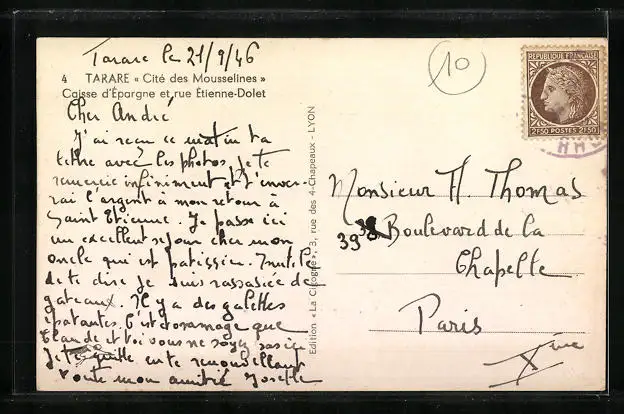 Tarare le 21/9/46
4 TARARE « Cité des Mousselines »
Caisse d'Épargne et rue Étienne-Dolet
Cher André
J'ai reçu ce matin ta
lettre avec les photos, je te
remercie infiniment et t'enver-
rai l'argent à mon retour à
Saint Etienne. Je passe ici
un excellent séjour chez mon
oncle qui est patissier. Inutile
de te dire je suis rassasiée de
gateaux. Il y a des galettes
épatantes. C'est dommage que
Claude et toi vous ne soyez pas ici
Je te quitte en te renouvellant
toute mon amitié Josette
Edition « La Cigogne », 3, rue des 4-Chapeaux - LYON
10
REPUBLIQUE FRANÇAISE
2F50 POSTES 2F50
Monsieur A. Thomas
39 Boulevard de la
Chapelle
Paris
Xème